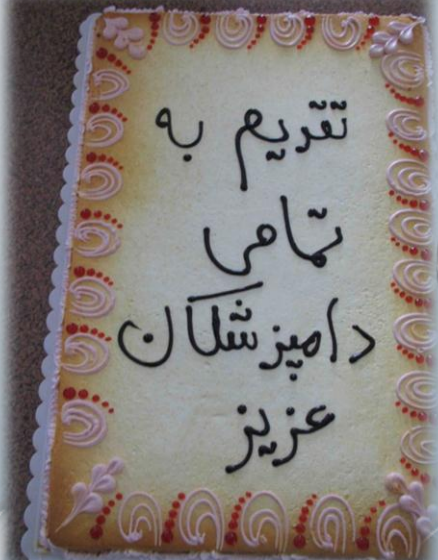 تقدیم به
تمامی
دامپزشکان
عزیز